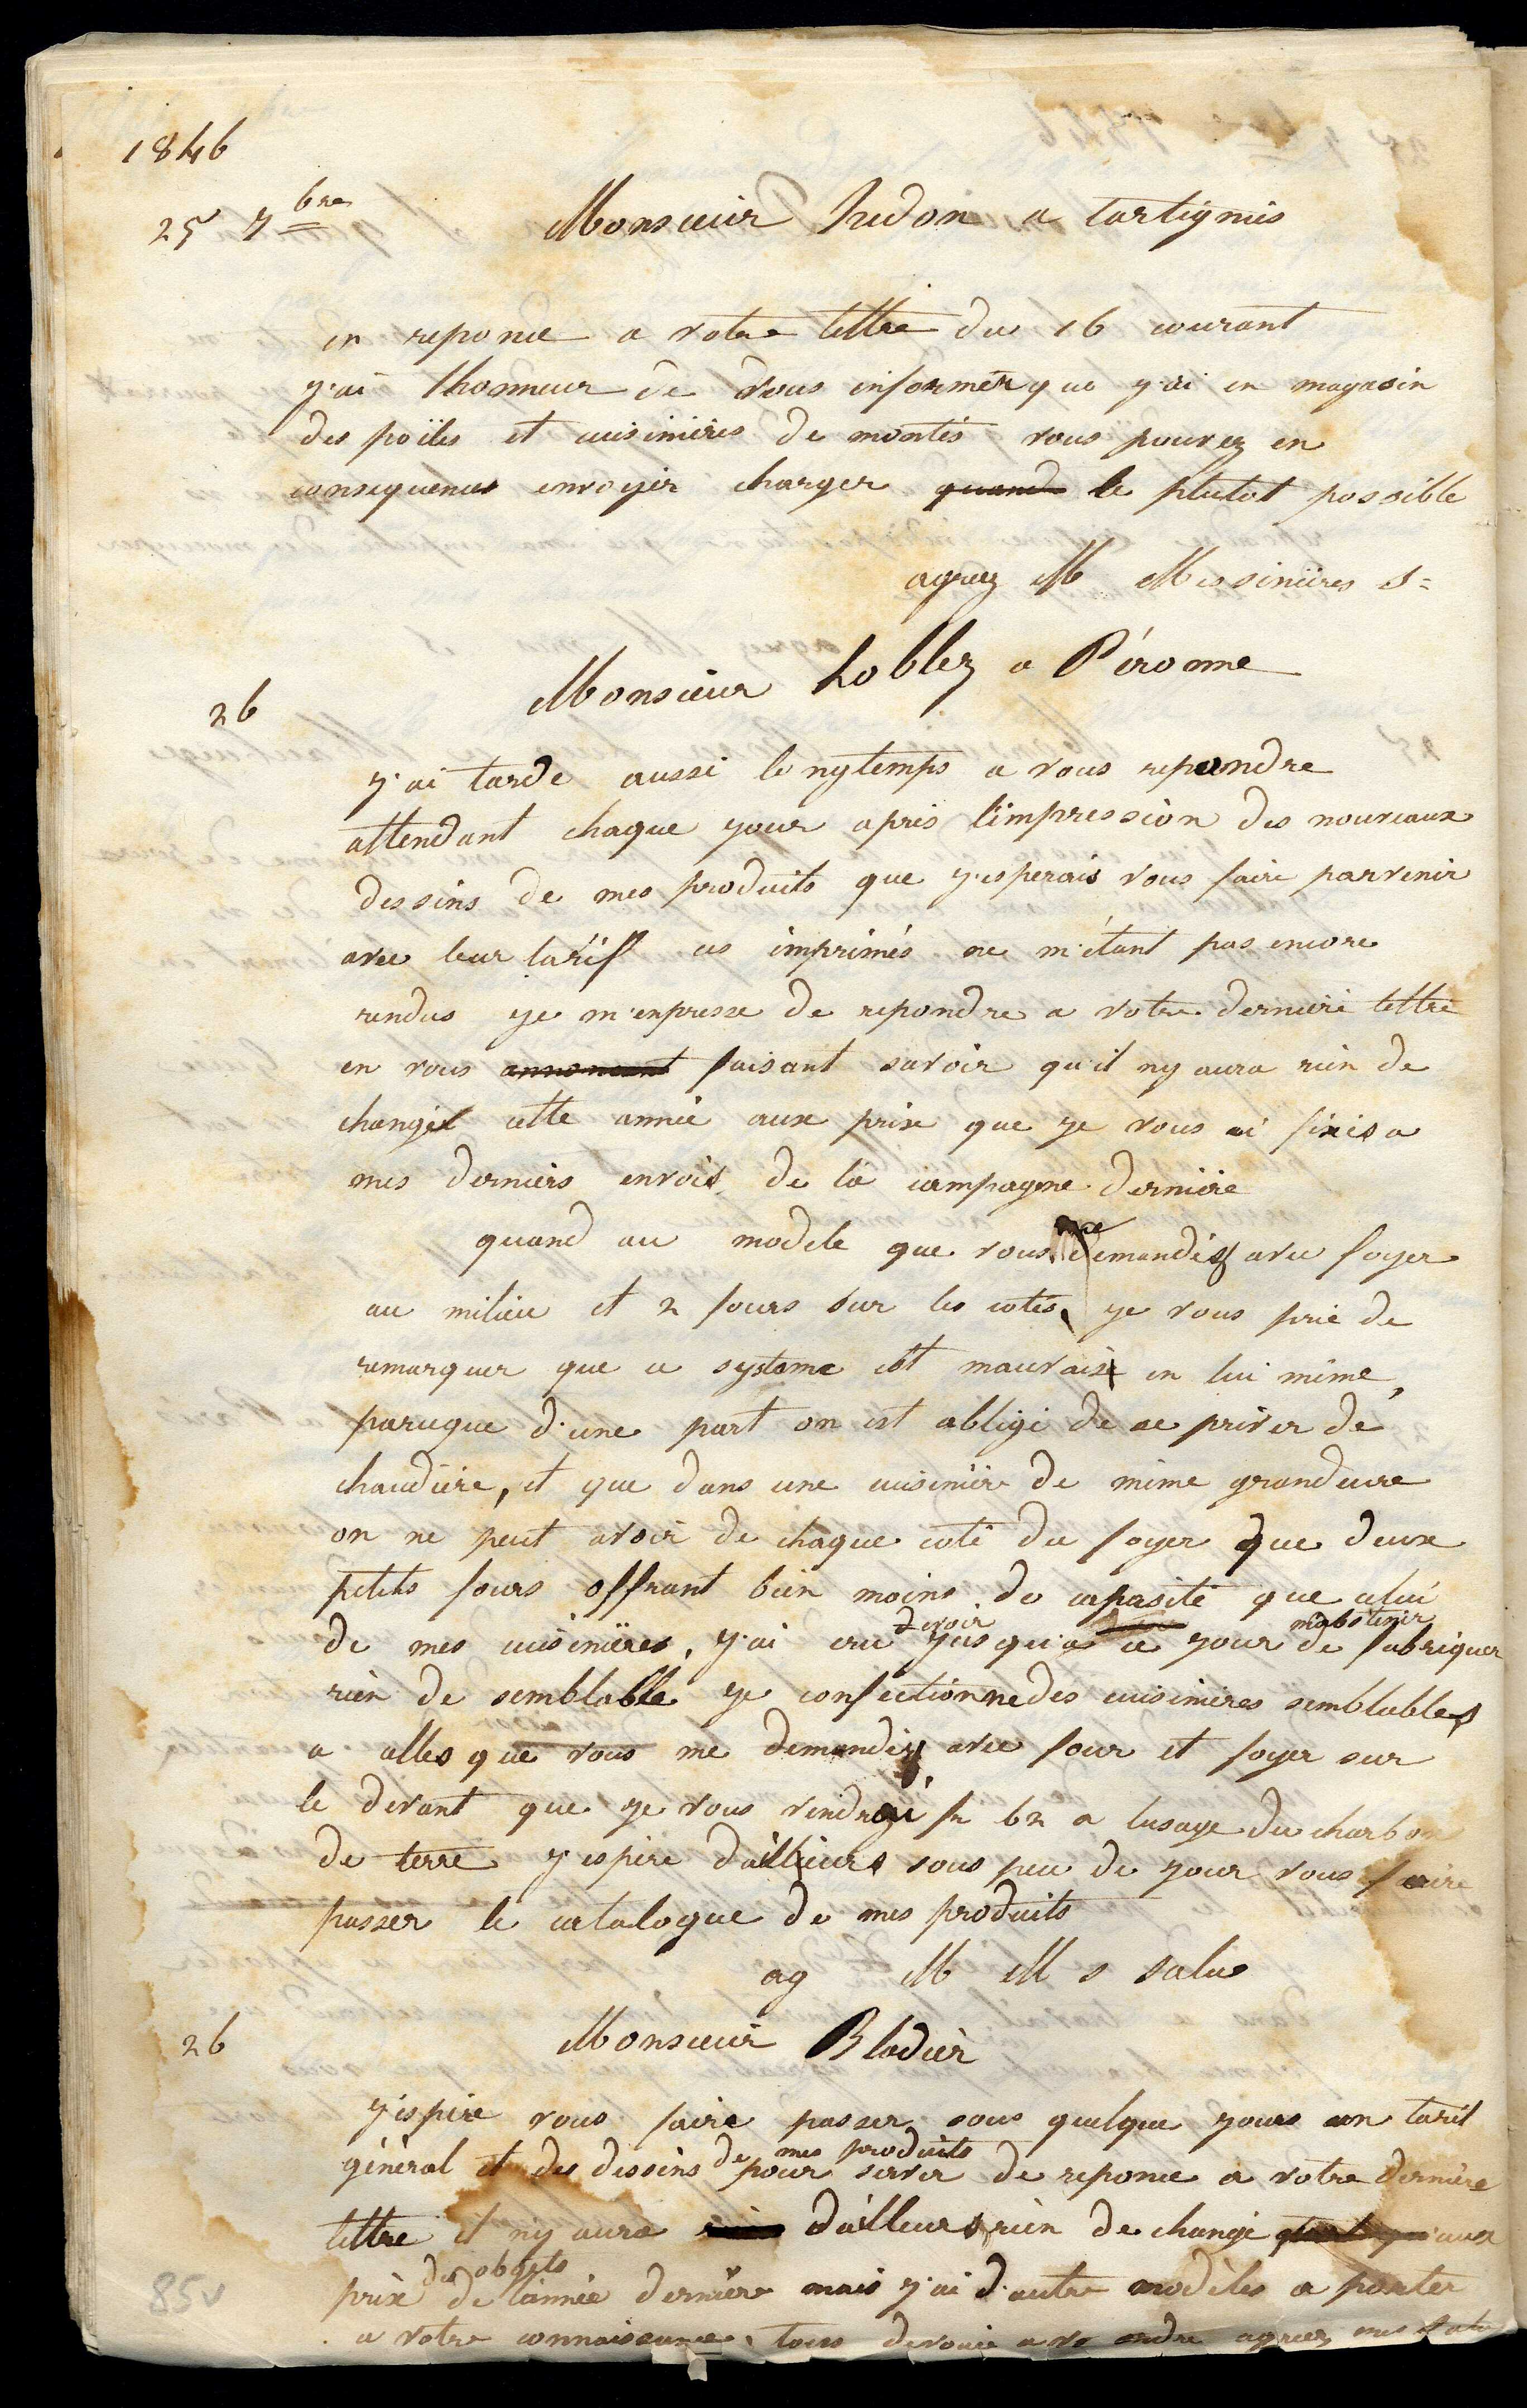 1846
25 7bre
Monsieur Judon a tartignies
en reponce a votre lettre du 16 courant
j'ai lhonneur de vous informer que j'ai en magasin
des poîles et cuisinières de montés vous pouvez en
consequences envoyér charger quand le plutot possible
agreez M Mes sinières s=
26
Monsieur Loblez a Péronne
j'ai tarde aussi longtemps a vous repondre
attendant chaque jour après l'impression des nouveaux
dessins de mes produits que j'esperais vous faire parvenir
avec leur tarif ces imprimés ne m'étant pas encore
rendus je m'enpresse de repondre a votre derniere lettre
en vous annoncant faisant savoir qu'il ny aura rien de
changé cette année aux prix que je vous ai fixés a
mes derniers envois de la campagne dernière
quand au modele que vous me demandez avec foyer
au milieu et 2 fours sur les cotés, je vous prie de
remarquer que ce systeme est mauvais en lui même,
parceque d'une part on est obligé de se priver de
chaudière, et que dans une cuisinière de même grandeure
on ne peut avoir de chaque coté du foyer que deux
petits fours offrant bien moins de capasité que celui
devoir m'abstenir
de mes cuisinières, j'ai cru jusqu'a ce jour de fabriquer
rien de semblable je confectionne des cuisinières semblables
a celles que vous me demandez avec four et foyer sur
le devant que je vous vendrai fr 62 a lusage du charbon
de terre j'espère dailleurs sous peu de jour vous faire
passer le catalogue de mes produits
ag M M s salue
26
Monsieur Bladier
j'espère vous faire passer sous quelque jours un tarif
de mes produits
général et des dessins pour server de reponce a votre dernière
lettre il n'y aura rien dailleurs rien de changé aux
des objets
prix de l'année dernière mais j'ai d'autre modèles a porter
a votre connaissance, tous devouée a vo agreez mes
85v